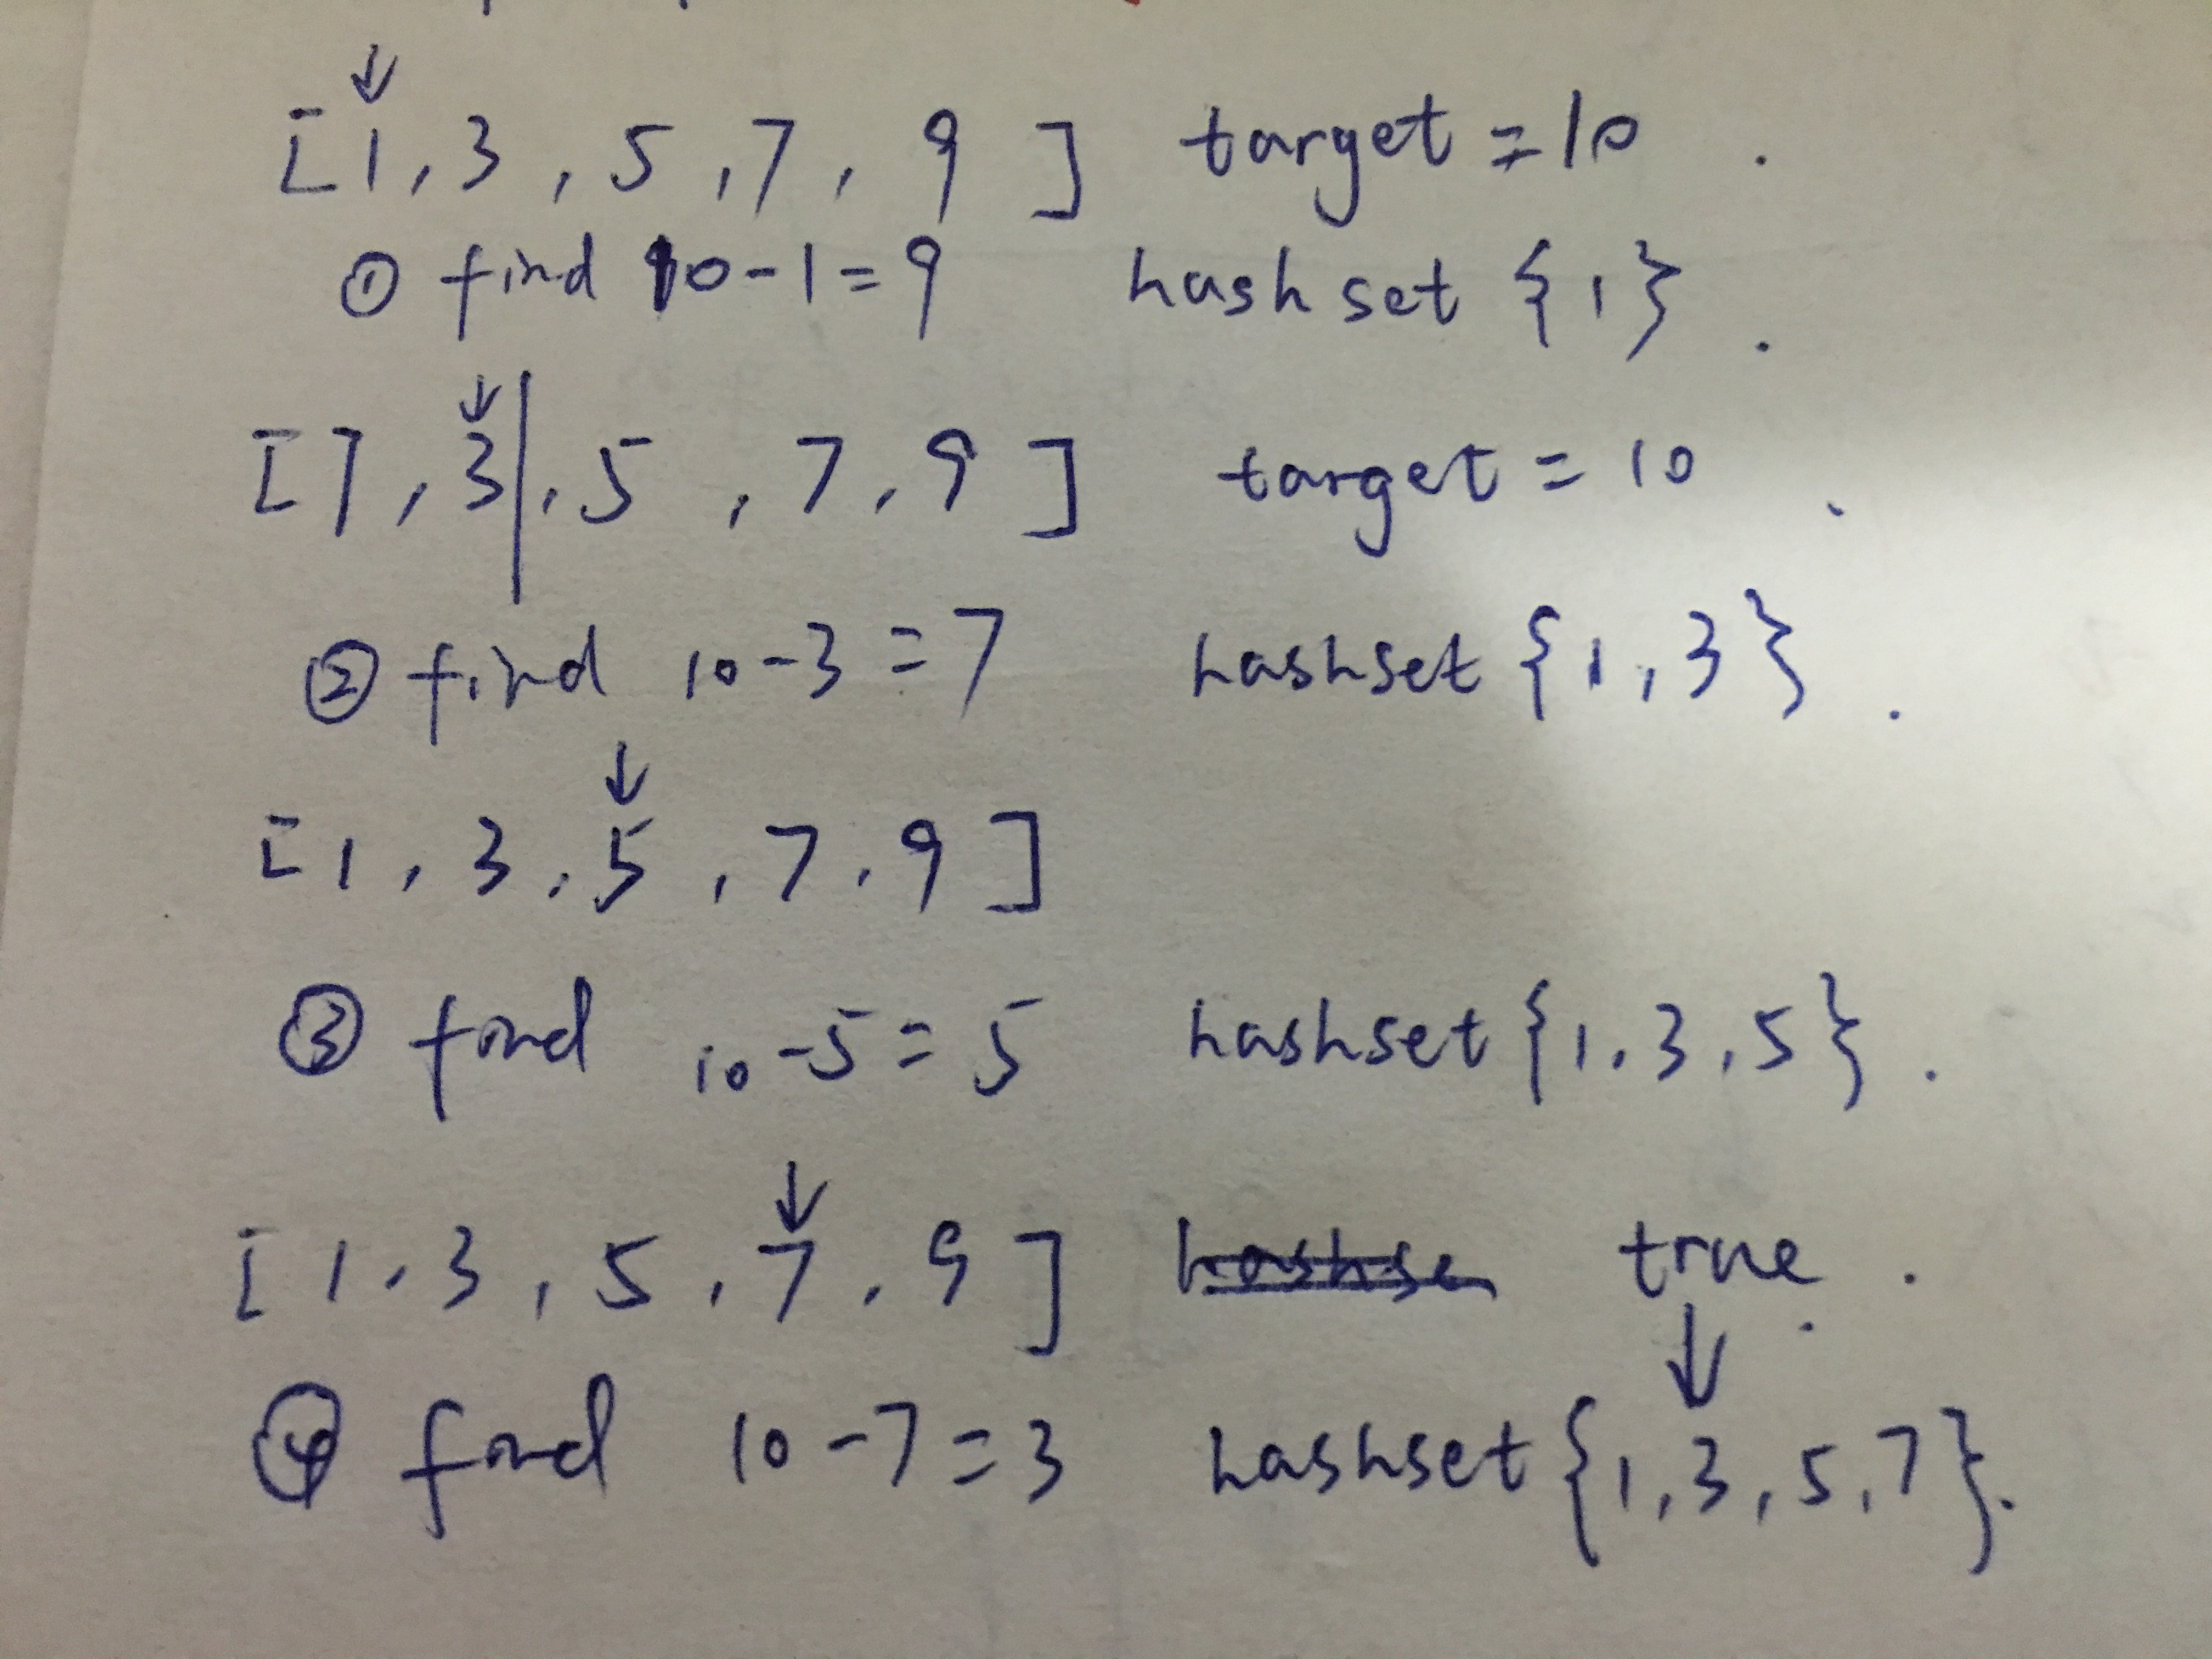 [1,3,5,7,9] target=10.
① find 10-1=9 hash set {1}.
[1,3,5,7,9] target=10.
② find 10-3=7 hashset {1,3}.
[1,3,5,7,9]
③ find 10-5=5 hashset {1,3,5}.
[1,3,5,7,9] true.
④ find 10-7=3 hashset {1,3,5,7}.